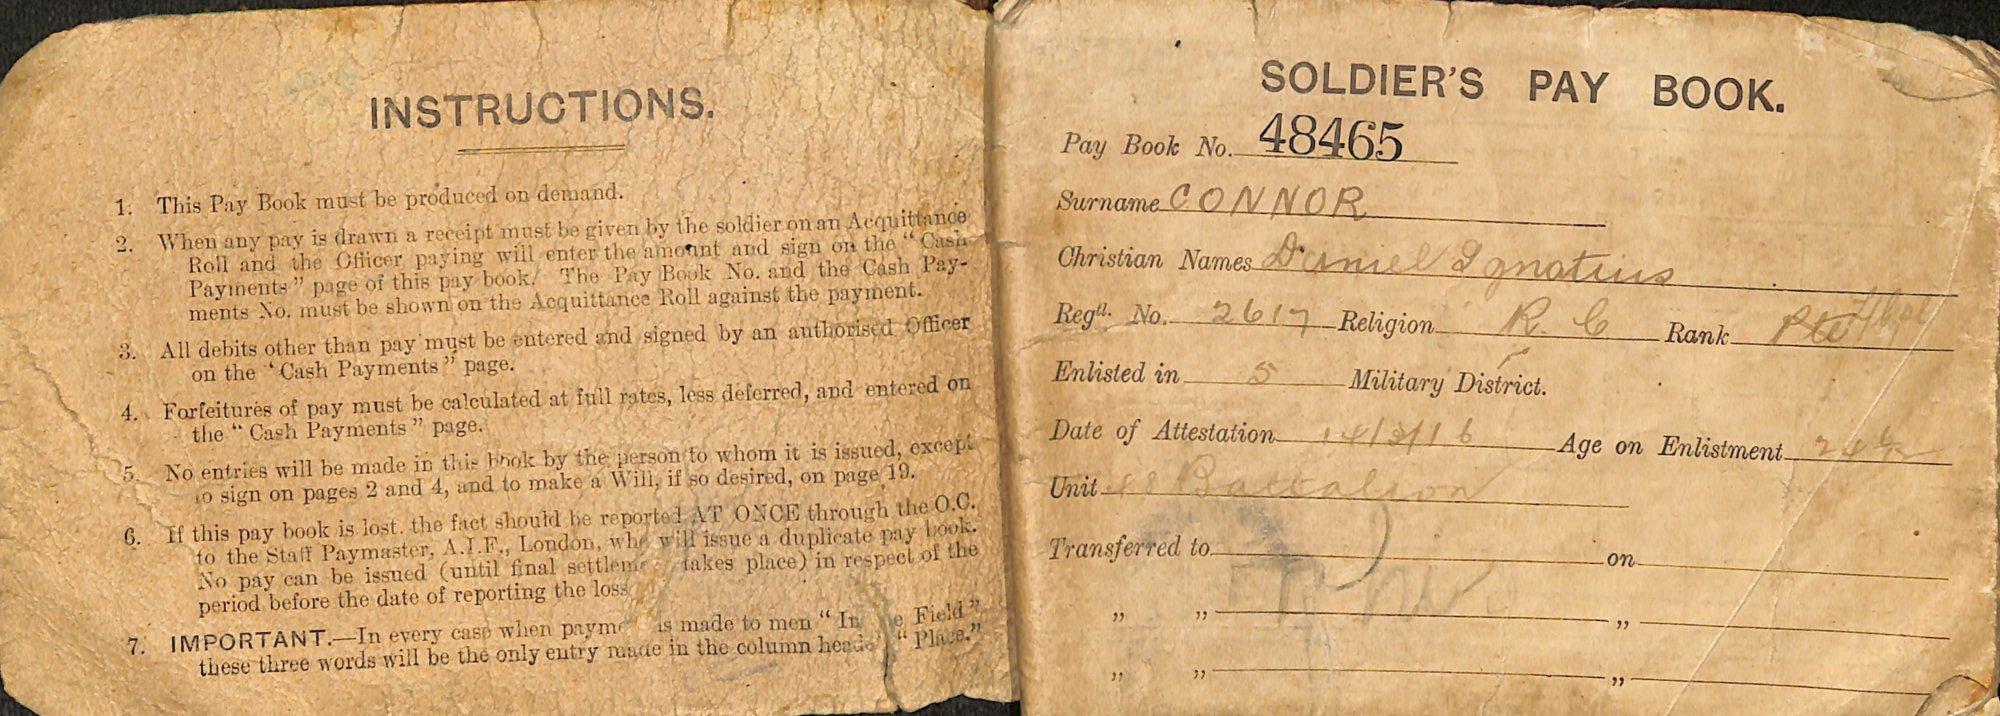 INSTRUCTIONS.
1. This Pay Book must be produced on demand.
2. When any pay is drawn a receipt must be given by the soldier on an Acquittance
Roll and the Officer paying will enter the amount and sign on the "Cash
Payments" page of this pay book. The Pay Book No. and the Cash Pay-
ments No. must be shown on the Acquittance Roll against the payment.
3. All debits other than pay must be entered and signed by an authorised Officer
on the "Cash Payments" page.
4. Forfeitures of pay must be calculated at full rates, less deferred, and entered on
the "Cash Payments" page.
5. No entries will be made in this book by the person to whom it is issued, except
to sign on pages 2 and 4, and to make a Will, if so desired, on page 19.
6. If this pay book is lost, the fact should be reported AT ONCE through the O.C.
to the Staff Paymaster, A.I.F., London, who will issue a duplicate pay book.
No pay can be issued (until final settleme takes place) in respect of the
period before the date of reporting the loss
7. IMPORTANT.—In every case when payme is made to men "In e Field"
these three words will be the only entry made in the column heade "Place."
SOLDIER'S PAY BOOK.
Pay Book No. 48465
Surname CONNOR
Christian Names Daniel Ignatius
Regtl. No. 2617 Religion R. C Rank Pte
Enlisted in 5 Military District.
Date of Attestation 14/3/16 Age on Enlistment 24
Unit Battalion
Transferred to on
" " "
" " "